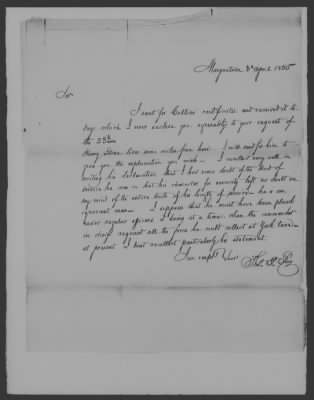 Morgantown 3d April 1835
Sir
I sent for Collins' certificate and received it to
day, which I now enclose you, agreeably to your request of
the 23d
Henry Stone lives some miles from here. I will send for him to
give you the explanation you wish. I recollect very well in
writing his declaration that I had some doubt of the kind of
service he was in but his character for veracity left no doubt on
my mind of the entire truth of his length of service. he is an
ignorant man. I suppose that he must have been placed
under regular officers, it being at a time when the commander
in chief request all the force he could collect at York town
at present I dont recollect particularly his statement.